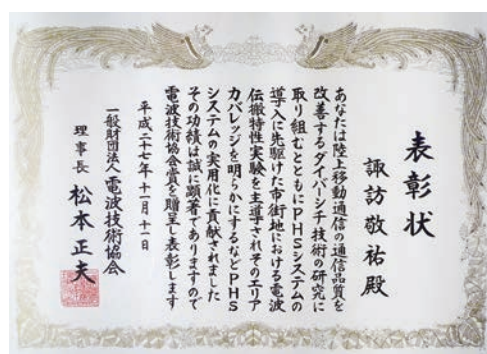 表彰状
諏訪敬祐殿
あなたは陸上移動通信の通信品質を
改善するダイバーシチ技術の研究に
取り組むとともにPHSシステムの
導入に先駆けた市街地における電波
伝搬特性実験を主導されそのエリア
カバレッジを明らかにするなどPHS
システムの実用化に貢献されました
その功績は誠に顕著でありますので
電波技術協会賞を贈呈し表彰します
平成二十七年十一月十一日
一般財団法人電波技術協会
理事長 松本正夫